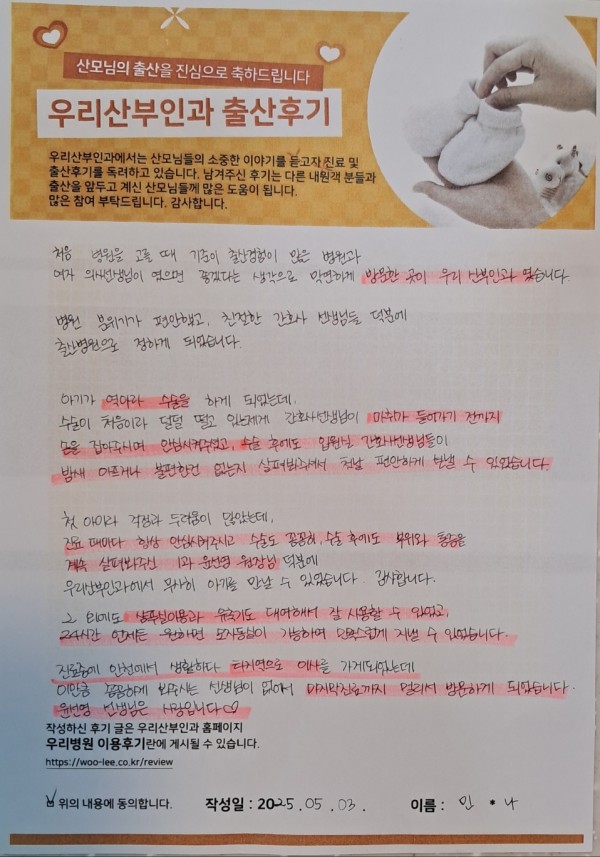 산모님의 출산을 진심으로 축하드립니다
우리산부인과 출산후기
우리산부인과에서는 산모님들의 소중한 이야기를 듣고자 진료 및
출산후기를 독려하고 있습니다. 남겨주신 후기는 다른 내원객 분들과
출산을 앞두고 계신 산모님들께 많은 도움이 됩니다.
많은 참여 부탁드립니다. 감사합니다.
처음 병원을 고를 때 기준이 출산경험이 많은 병원과
여자 의사선생님이 였으면 좋겠다는 생각으로 막연하게 방문한 곳이 우리 산부인과 였습니다.
병원 분위기가 편안했고, 친절한 간호사 선생님들 덕분에
출산병원으로 정하게 되었습니다.
아기가 역아라 수술을 하게 되었는데,
수술이 처음이라 덜덜 떨고 있는데 간호사선생님이 마취가 들어가기 전까지
손을 잡아주시며 안심시켜주셨고, 수술 후에도 입원실 간호사선생님들이
밤새 아프거나 불편한건 없는지 살펴봐주셔서 첫날 편안하게 보낼 수 있었습니다.
첫 아이라 걱정과 두려움이 많았는데,
진료 때마다 항상 안심시켜주시고 수술도 꼼꼼히, 수술 후에도 부위와 통증을
계속 살펴봐주신 1과 윤선영 원장님 덕분에
우리산부인과에서 무사히 아기를 만날 수 있었습니다. 감사합니다.
그 외에도 상부실이용과 유축기도 대여해서 잘 사용할 수 있었고,
24시간 언제든 원하면 모자동실이 가능하여 만족스럽게 지낼 수 있었습니다.
진료중에 인천에서 생활하다 타지역으로 이사를 가게되었는데
이만큼 꼼꼼하게 봐주시는 선생님이 없어서 마지막진료까지 멀리서 방문하게 되었습니다.
윤선영 선생님은 사랑입니다♡
작성하신 후기 글은 우리산부인과 홈페이지
우리병원 이용후기란에 게시될 수 있습니다.
https://woo-lee.co.kr/review
위의 내용에 동의합니다. 작성일 : 2025.05.03. 이름 : 민 * 나